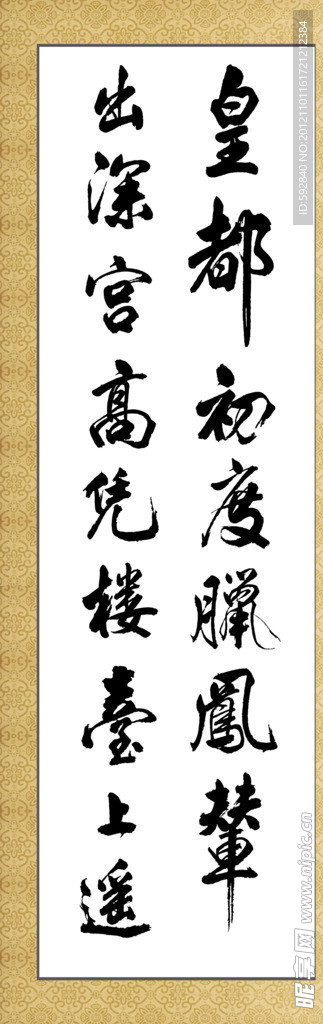 皇都初度臘鳳輦
出深宫高凭楼臺上遥
ID:592840 NO:20121101161721212384
昵享网 www.nipic.cn